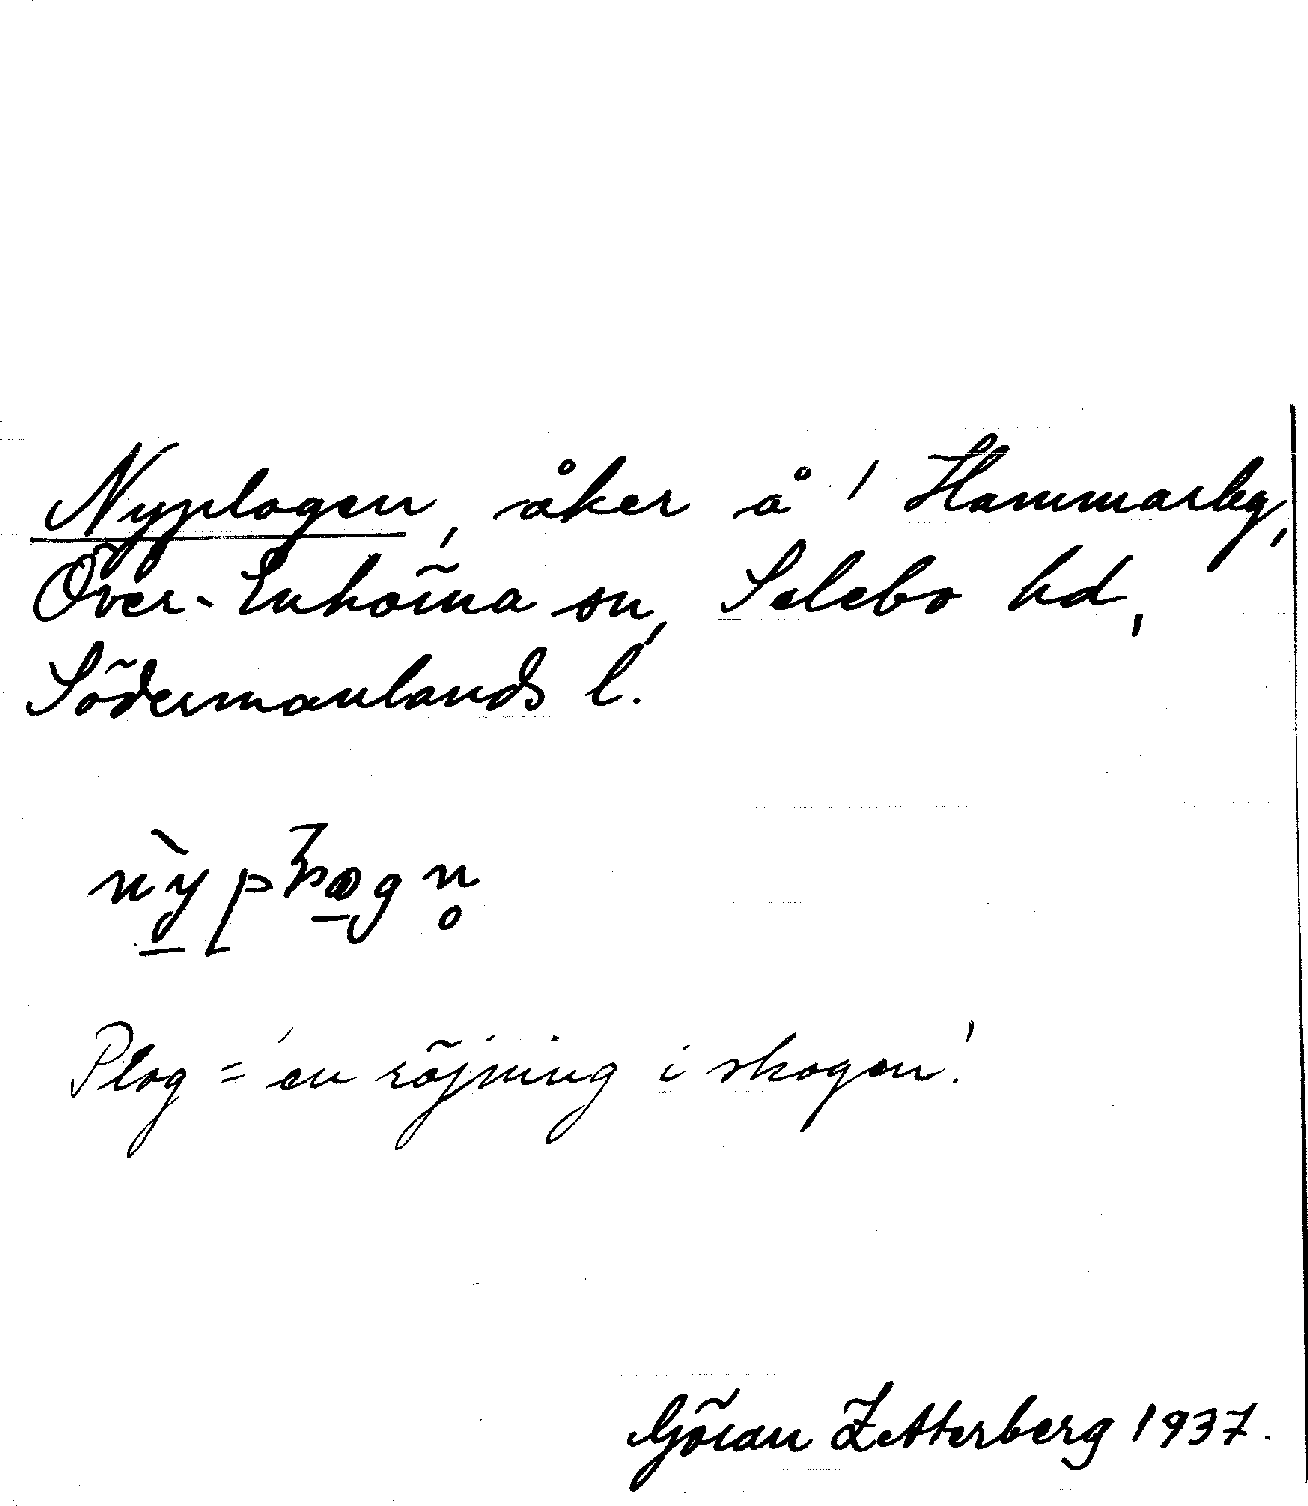 Nyplogen, åker å ' Hammarby,
Över-Enhörna sn, Selebo hd,
Södermanlands l.
Plog = 'en röjning i skogen'.
Göran Zetterberg 1937.